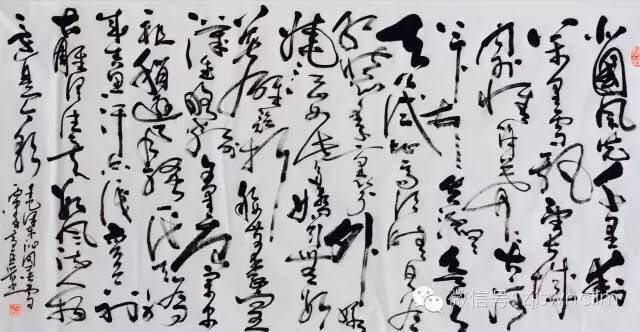 北國風光千里冰封
萬里雪飄望長城
內外惟余莽莽大河
上下
天公試比高須晴日看
紅裝素裹分外妖
嬈江山如此多嬌引無數
英雄競折腰惜秦皇
漢武略輸文采唐宗宋
祖稍遜風騷一代天驕
成吉思汗只識彎弓射
大雕俱往矣數風流人物
還看今朝
毛澤東沁園春雪
微信号: